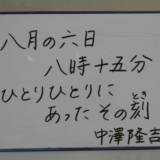 八月の六日
八時十五分
ひとりひとりに
あったその刻
とき
中澤隆吉